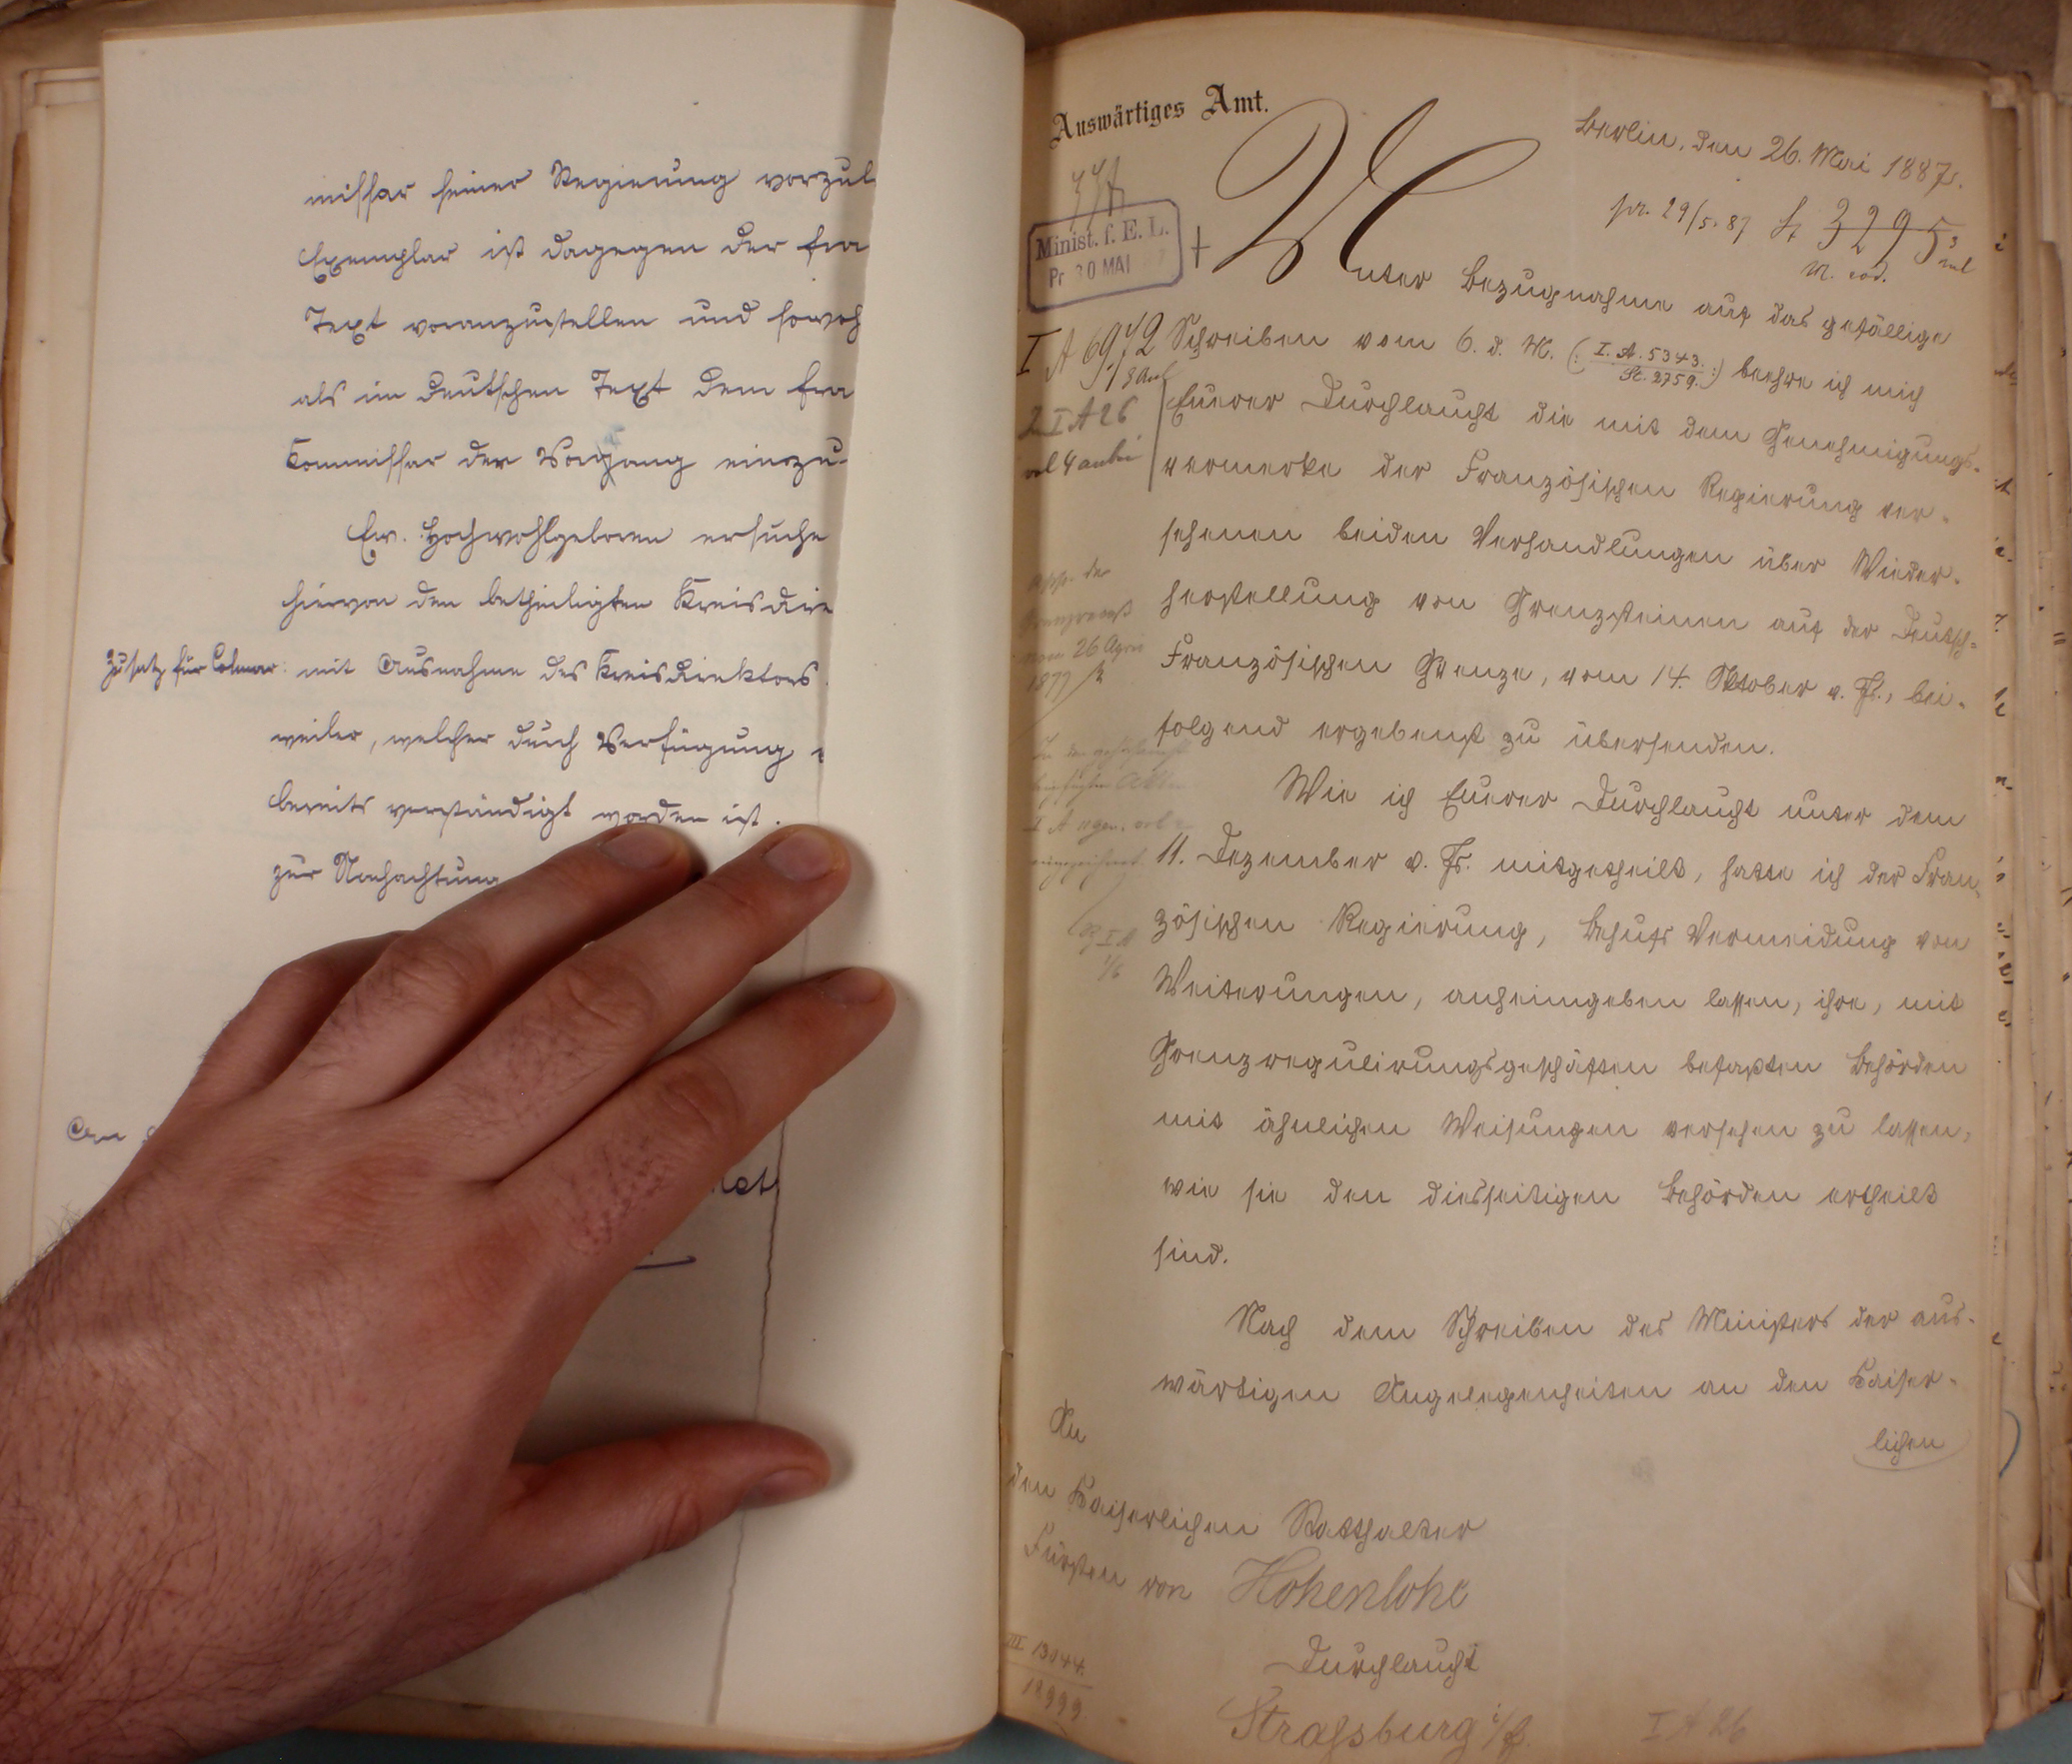 missar seiner Regierung vorzul
Exemplar ist dagegen der fra
Text voranzustellen und sowoh
als im deutschen Text dem fra
Kommissar der Vorgang einzu-
Ew. Hochwohlgeboren ersuche
hiervon den betheiligten Kreisdire
Zusatz für Colmar: mit Ausnahme des Kreisdirektors
weiler, welcher durch Verfügung
bereits verständigt worden ist.
zur Nachachtung
An
Auswärtiges Amt.
Berlin, den 26. Mai 1887.
pr. 29/5. 87 3295
Minist. f. E. L.
Pr 30 MAI
Unter Bezugnahme auf das gefällige
I A 6972
Schreiben vom 6. d. M. (: I. A. 5343. / St. 2759. :) beehre ich mich
I A 26
Euerer Durchlaucht die mit dem Genehmigungs-
vermerke der Französischen Regierung ver-
sehenen beiden Verhandlungen über Wieder-
herstellung von Grenzsteinen auf der Deutsch-
vom 26 April
1877
Französischen Grenze, vom 14. Oktober v. Js., bei-
folgend ergebenst zu übersenden.
Wie ich Euerer Durchlaucht unter dem
11. Dezember v. Js. mitgetheilt, hatte ich der Fran-
zösischen Regierung, behufs Vermeidung von
Weiterungen, anheimgeben lassen, ihre, mit
Grenzregulirungsgeschäften befaßten Behörden
mit ähnlichen Weisungen versehen zu lassen,
wie sie den diesseitigen Behörden ertheilt
sind.
Nach dem Schreiben des Ministers der aus-
wärtigen Angelegenheiten an den Kaiser-
lichen
An
den Kaiserlichen Statthalter
Fürsten von Hohenlohe
Durchlaucht
Strassburg i/E.
III 13044.
12999
I A 26